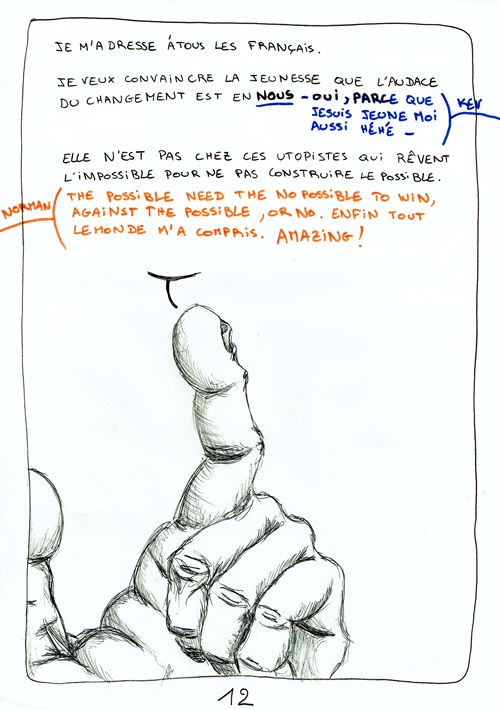 JE M'ADRESSE À TOUS LES FRANÇAIS.
JE VEUX CONVAINCRE LA JEUNESSE QUE L'AUDACE
DU CHANGEMENT EST EN NOUS - OUI, PARCE QUE
JE SUIS JEUNE MOI
AUSSI HÉHÉ -
KEV
ELLE N'EST PAS CHEZ CES UTOPISTES QUI RÊVENT
L'IMPOSSIBLE POUR NE PAS CONSTRUIRE LE POSSIBLE.
NORMAN
THE POSSIBLE NEED THE NO POSSIBLE TO WIN,
AGAINST THE POSSIBLE, OR NO. ENFIN TOUT
LE MONDE M'A COMPRIS. AMAZING!
12